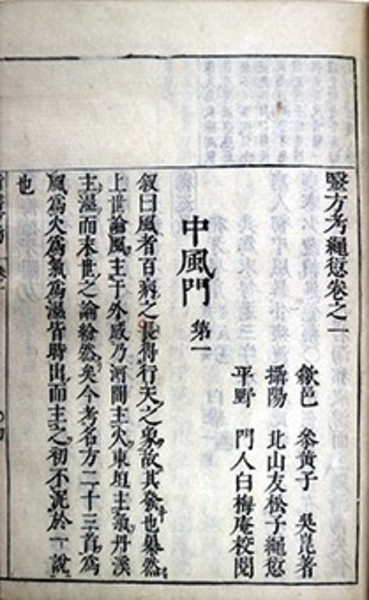 醫方考繩愆卷之一
歙邑 參黃子 吳崑著
攝陽 北山友松子繩愆
平野 門人白梅庵校閱
中風門 第一
叙曰風者百病之長得行天之象故其發也暴然
上世論風主于外感乃河間主火東垣主氣丹溪
主濕而末世之論紛然矣今考名方二十三首爲
風爲火爲氣爲濕皆時出而主之初不泥於一說
也